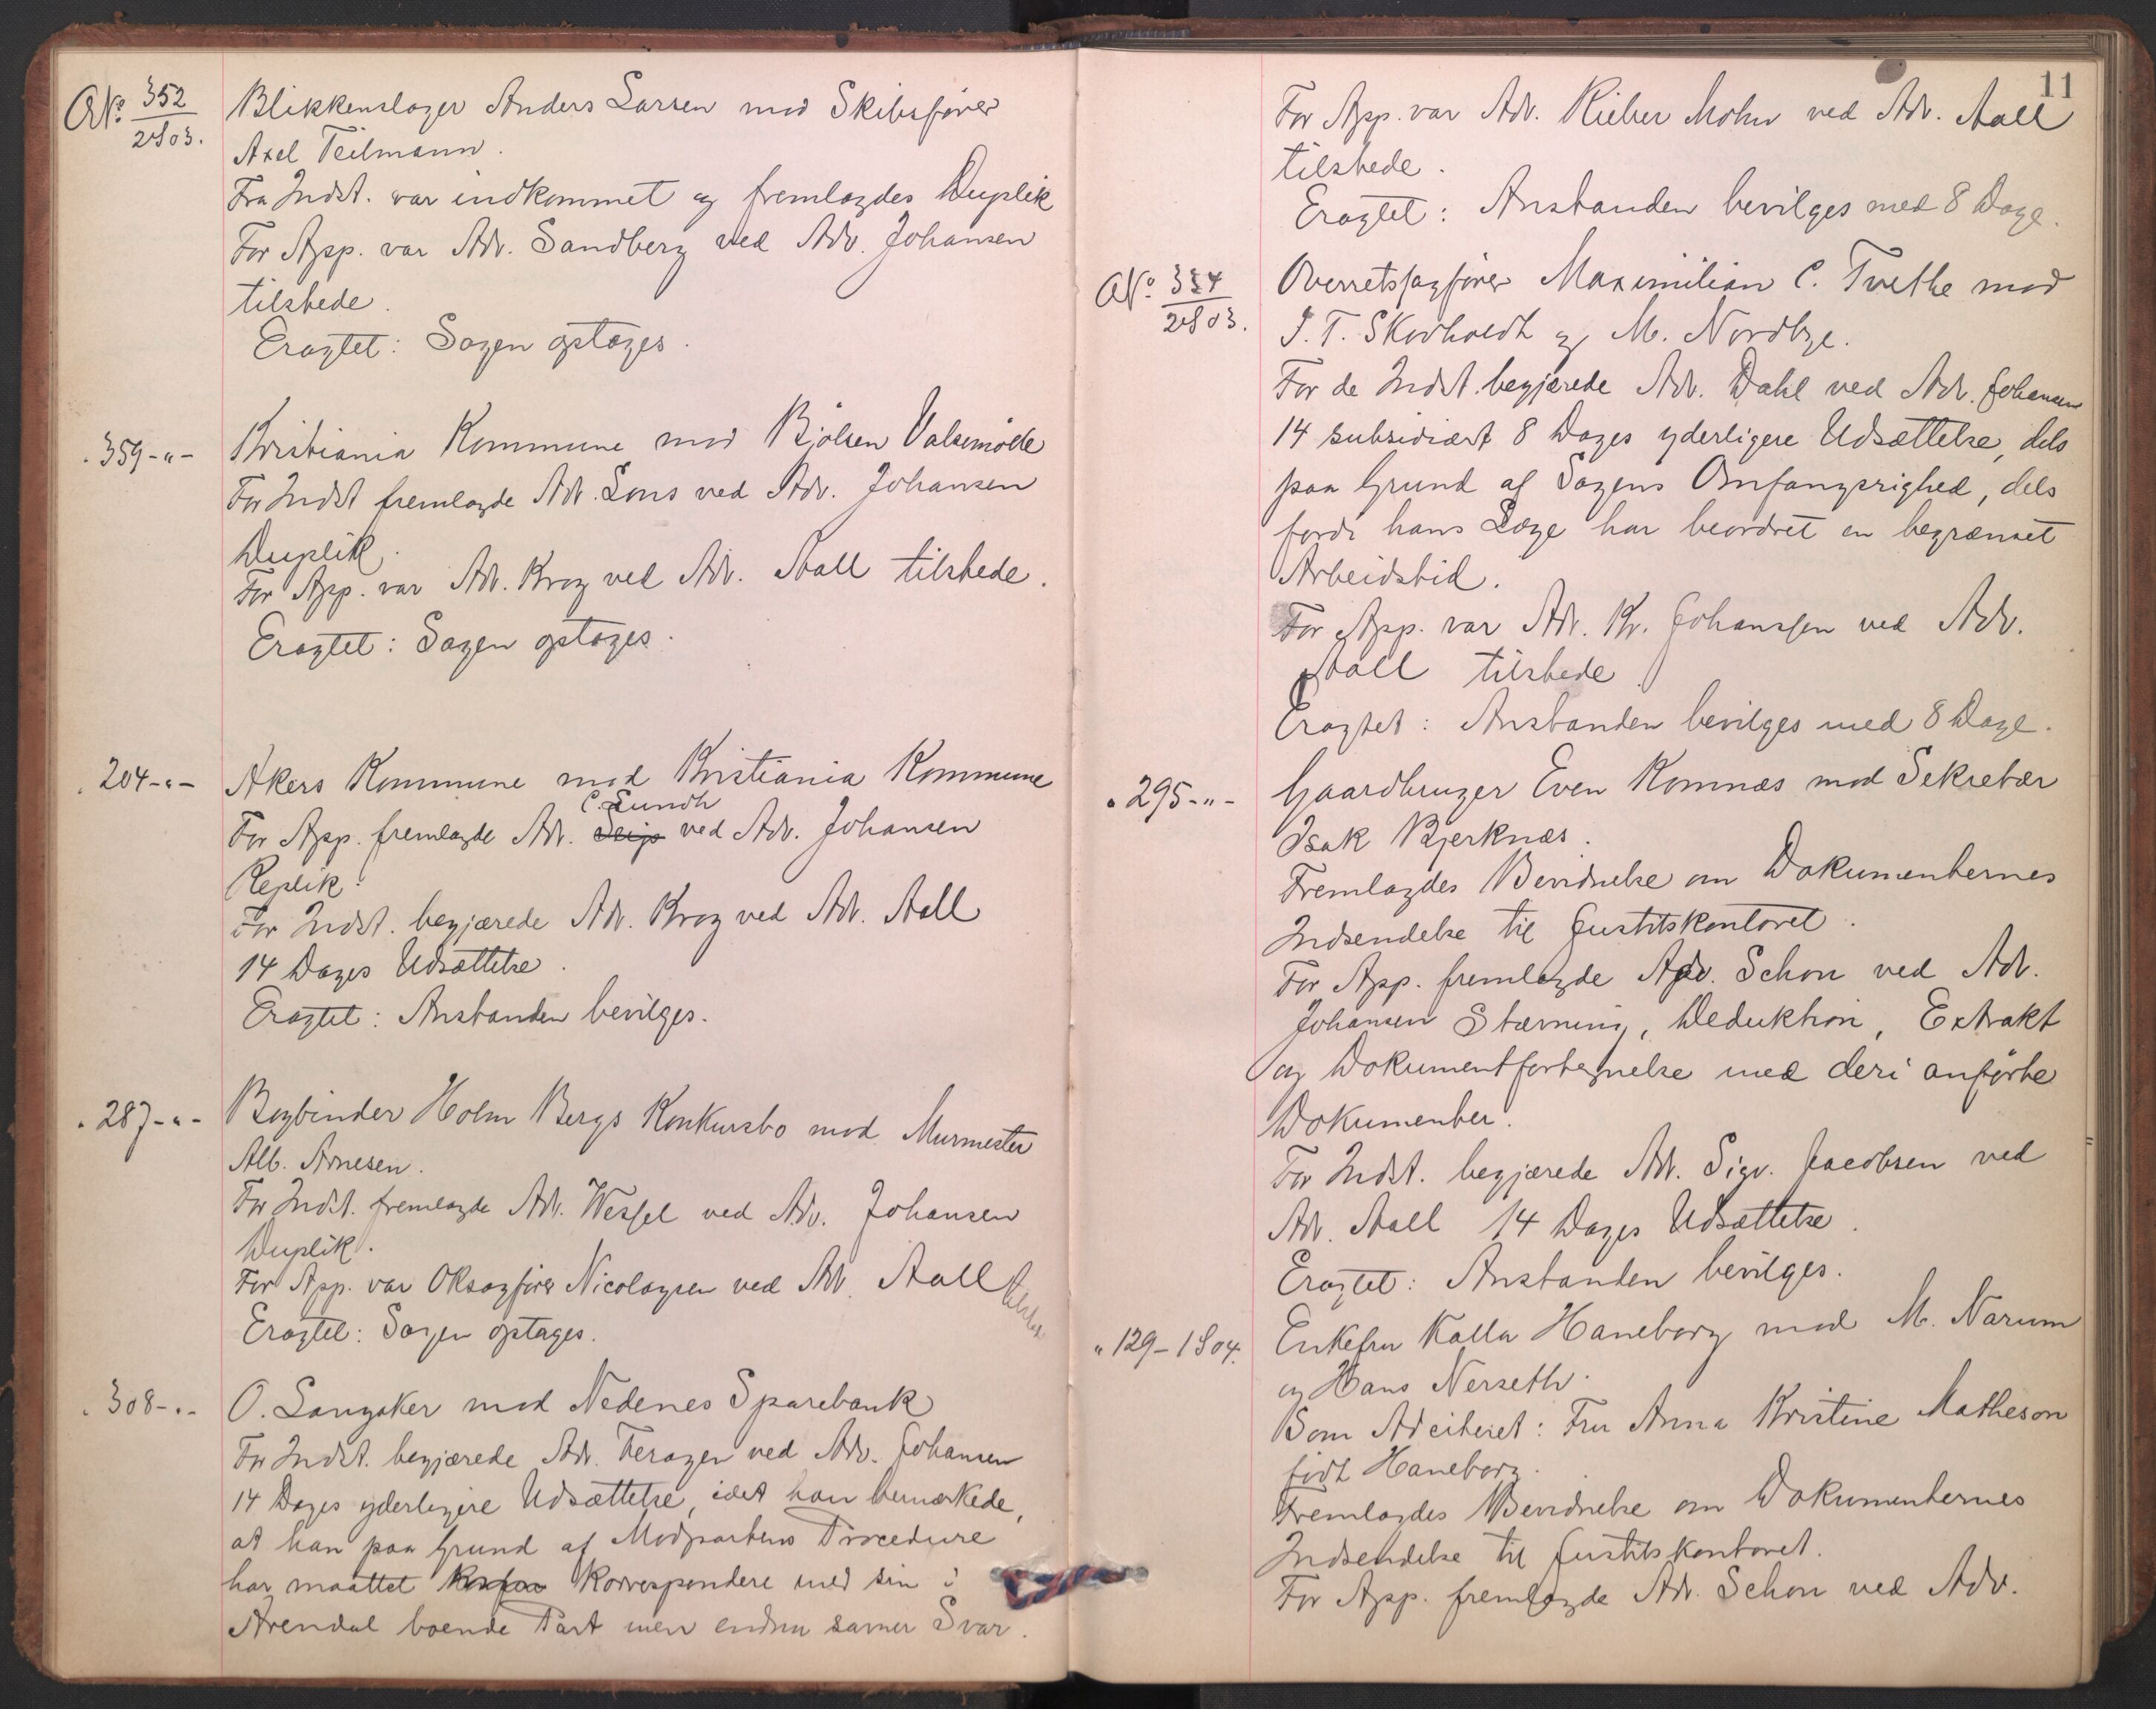 No. 352
2 1903.
Blikkenslager Anders Larsen mod Skibsfører
Axel Teilmann.
Fra Indst. var indkommet og fremlagdes Duplik
For App. var Adv. Sandberg ved Adv. Johansen
tilstede.
Eragtet: Sagen optages.
. 359 - " -
Kristiania Kommune mod Bjølsen Valsemølle
For Indst fremlagde Adv. Lous ved Adv. Johansen
Duplik.
For App. var Adv. Krag ved Adv. Aall tilstede.
Eragtet: Sagen optages.
. 204 - " -
Akers Kommune mod Kristiania Kommune
C. Lundh
For App. fremlagde Adv. ved Adv. Johansen
Replik.
For Indst. begjærede Adv. Krag ved Adv. Aall
14 Dages Udsættelse.
Eragtet: Anstanden bevilges.
. 287 - " -
Bogbinder Holm Bergs Konkursbo mod Murmester
Alb. Arnesen.
For Indst. fremlagde Adv. Wessel ved Adv. Johansen
Duplik.
For App. var Oksagfører Nicolaysen ved Adv. Aall tilstede
Eragtet: Sagen optages.
. 308 - " -
O. Langaker mod Nedenes Sparebank
For Indst. begjærede Adv. ved Adv. Johansen
14 Dages yderligere Udsættelse, idet han bemærkede,
at han paa Grund af Modpartens Procedure
har maattet korrespondere med sin i
Arendal boende Part men endnu savner Svar.
11
For App. var Adv. Rieber Mohn ved Adv. Aall
tilstede.
Eragtet: Anstanden bevilges med 8 Dage.
No. 354
2 1903.
Overretssagfører Maximilian C. Tvethe mod
J. T. Skovholdt og M. Nordbye.
For de Indst. begjærede Adv. Dahl ved Adv. Johansen
14 subsidiært 8 Dages yderligere Udsættelse, dels
paa Grund af Sagens Omfangsrighed, dels
fordi hans Læge har beordret en begrænset
Arbeidstid.
For App. var Adv. Kr. Johanssen ved Adv.
Aall tilstede.
Eragtet: Anstanden bevilges med 8 Dage.
. 295 - " -
Gaardbruger Even Komnæs mod Sekretær
Isak Bjerknæs.
Fremlagdes Bevidnelse om Dokumenternes
Indsendelse til Justitskontoret.
For App. fremlagde Adv. Schou ved Adv.
Johansen Stævning, Deduktion, Extrakt
og Dokumentfortegnelse med deri anførte
Dokumenter.
For Indst. begjærede Adv. Sigv. Jacobsen ved
Adv. Aall 14 Dages Udsættelse.
Eragtet: Anstanden bevilges.
" 129 - 1904.
Enkefru Kalla Haneborg mod M. Narum
og Hans Nerseth.
Som Adciteret: Fru Anna Kristine Matheson
født Haneborg.
Fremlagdes Bevidnelse om Dokumenternes
Indsendelse til Justitskontoret.
For App. fremlagde Adv. Schou ved Adv.